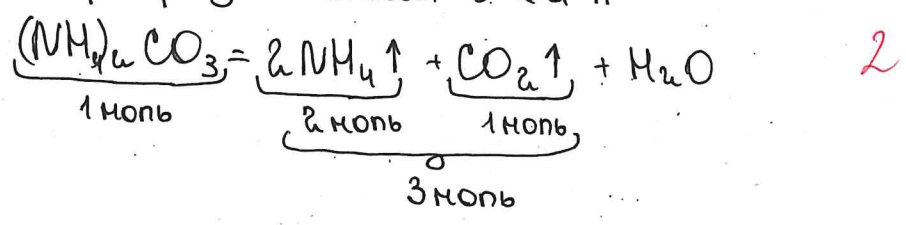 (NH₄)₂CO₃ = 2NH₄↑ + CO₂↑ + H₂O 2
1 моль 2 моль 1 моль
3 моль